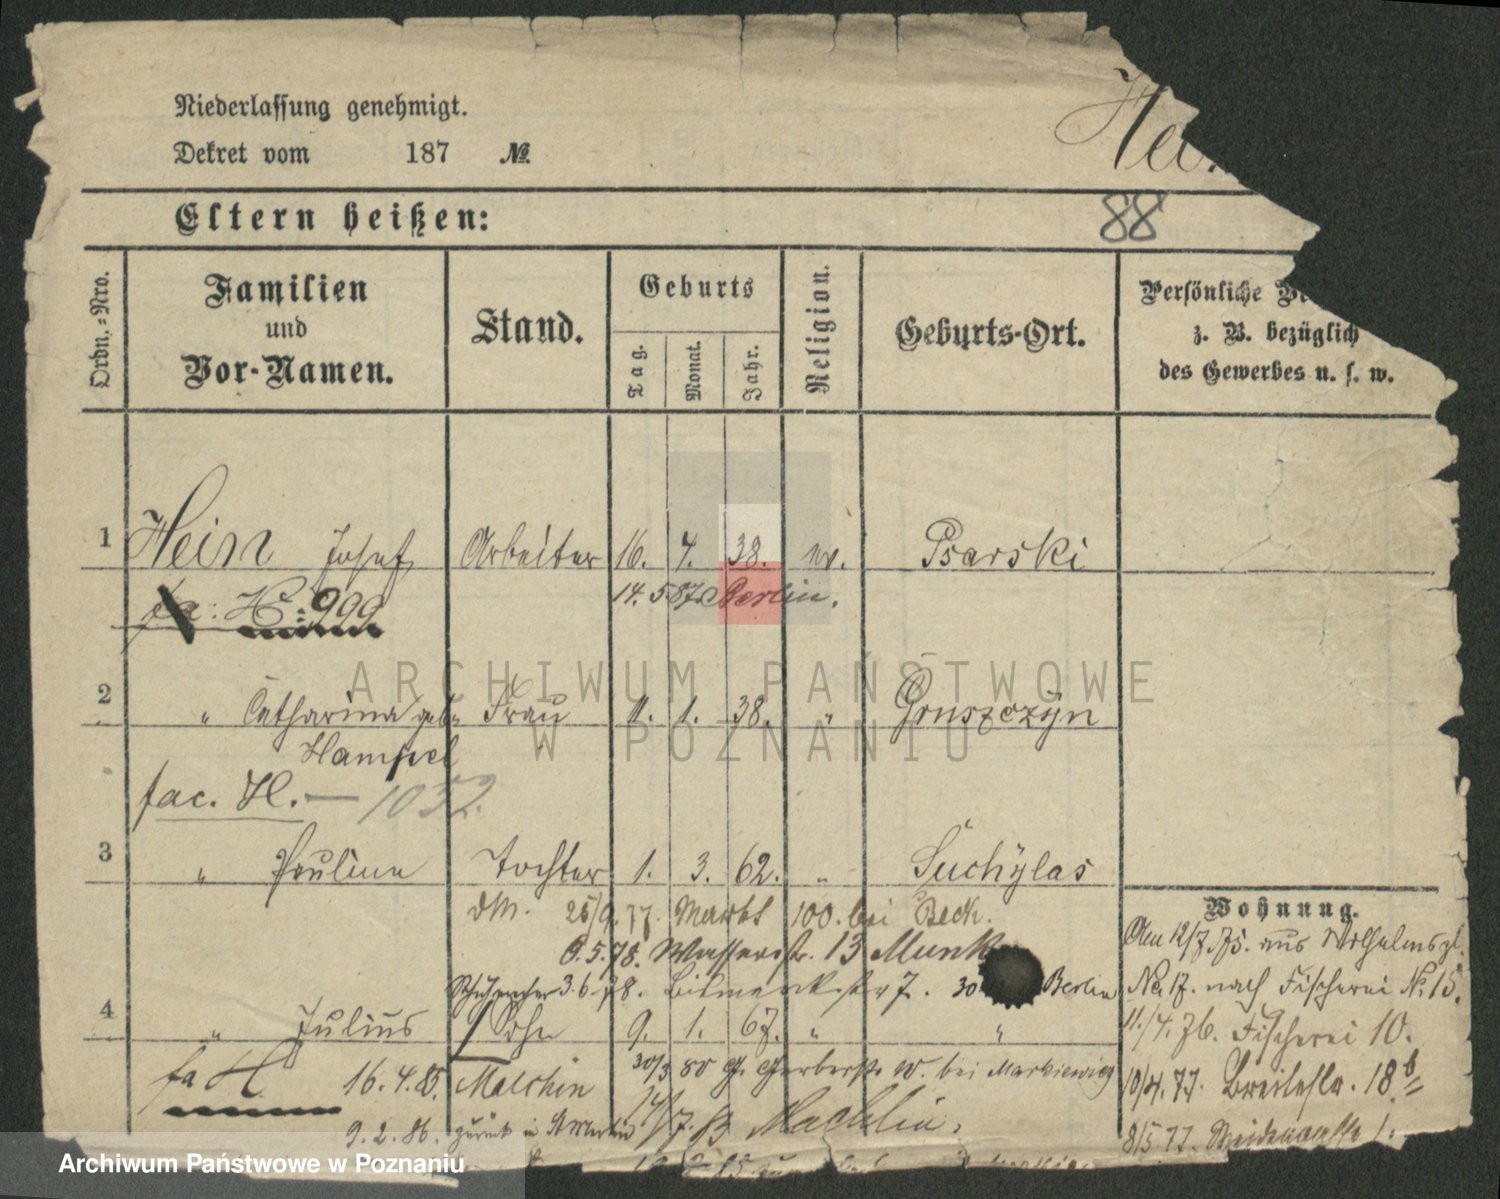 Niederlassung genehmigt.
Dekret vom 187 №
Hei
Eltern heißen:
88
Ordn.-Nro.
Familien
und
Vor-Namen.
Stand.
Geburts
Tag.
Monat.
Jahr.
Religion.
Geburts-Ort.
Persönliche
z. B. bezüglich
des Gewerbes u. s. w.
1 Hein Josef Arbeiter 16. 4. 38. Psarski
14. 5. 87. Berlin.
fa: H: 999
2 " Catharina geb. Frau 11. 1. 38. " Gruszczyn
Hampel
fac. H. — 1032.
3 " Paulina Tochter 1. 3. 62. " Suchylas
25/9. 77. Markt 100. bei Beck.
5. 78. Wasserstr. 13 Munk
3. 6. 78. Bismarckstr 7. 30 Berlin
4 " Julius Sohn 9. 1. 67. " "
fa H 16. 4. 85. Malchin
30/3 80 Gr. Gerberstr. bei Markiewicz
9. 2. 86. zurück
Wohnung.
Am 12/7. 75. aus Wilhelmspl.
No. 17. nach Fischerei No. 15.
11./4. 76. Fischerei 10.
10/4. 77. Breitestr. 18.b
8/5 77. Weidengasse 1.
ARCHIWUM PAŃSTWOWE
W POZNANIU
Archiwum Państwowe w Poznaniu